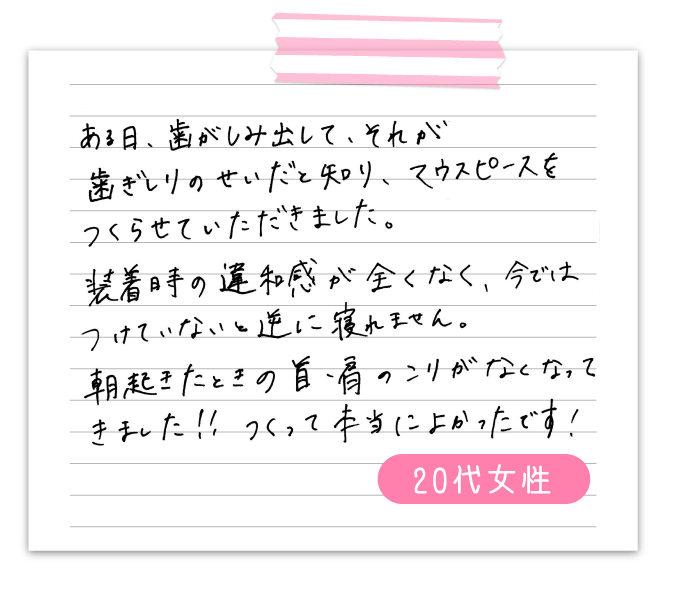 ある日、歯がしみ出して、それが
歯ぎしりのせいだと知り、マウスピースを
つくらせていただきました。
装着時の違和感が全くなく、今では
つけていないと逆に寝れません。
朝起きたときの首・肩のコリがなくなって
きました!! つくって本当によかったです!
20代女性